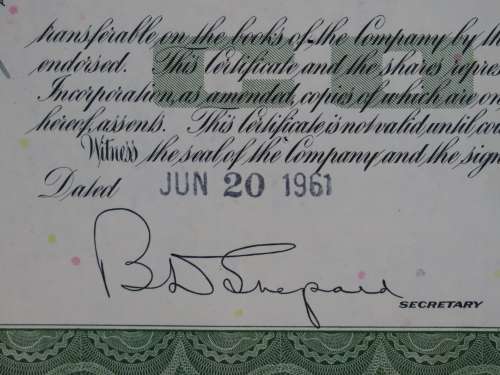 transferable on the books of the Company by th
endorsed. This Certificate and the shares repres
Incorporation, as amended, copies of which are on
hereof, assents. This Certificate is not valid until cou
Witness the seal of the Company and the sign
Dated JUN 20 1961
B D Shepard
SECRETARY